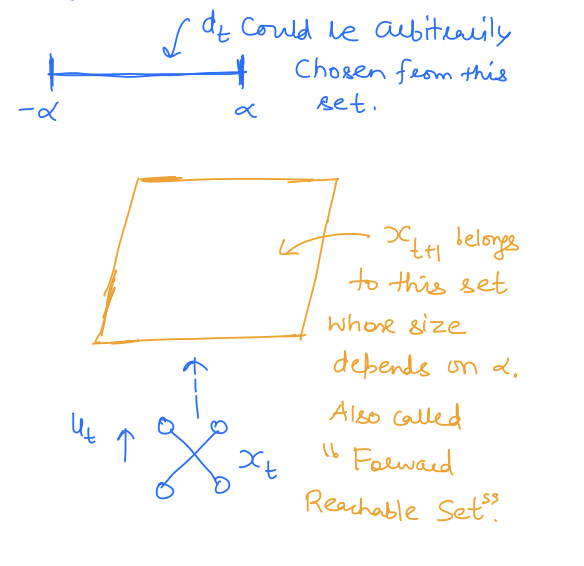 d_t Could be arbitrarily
Chosen from this
set.
-α
α
x_{t+1} belongs
to this set
whose size
depends on α.
Also called
"Forward
Reachable Set".
u_t
x_t